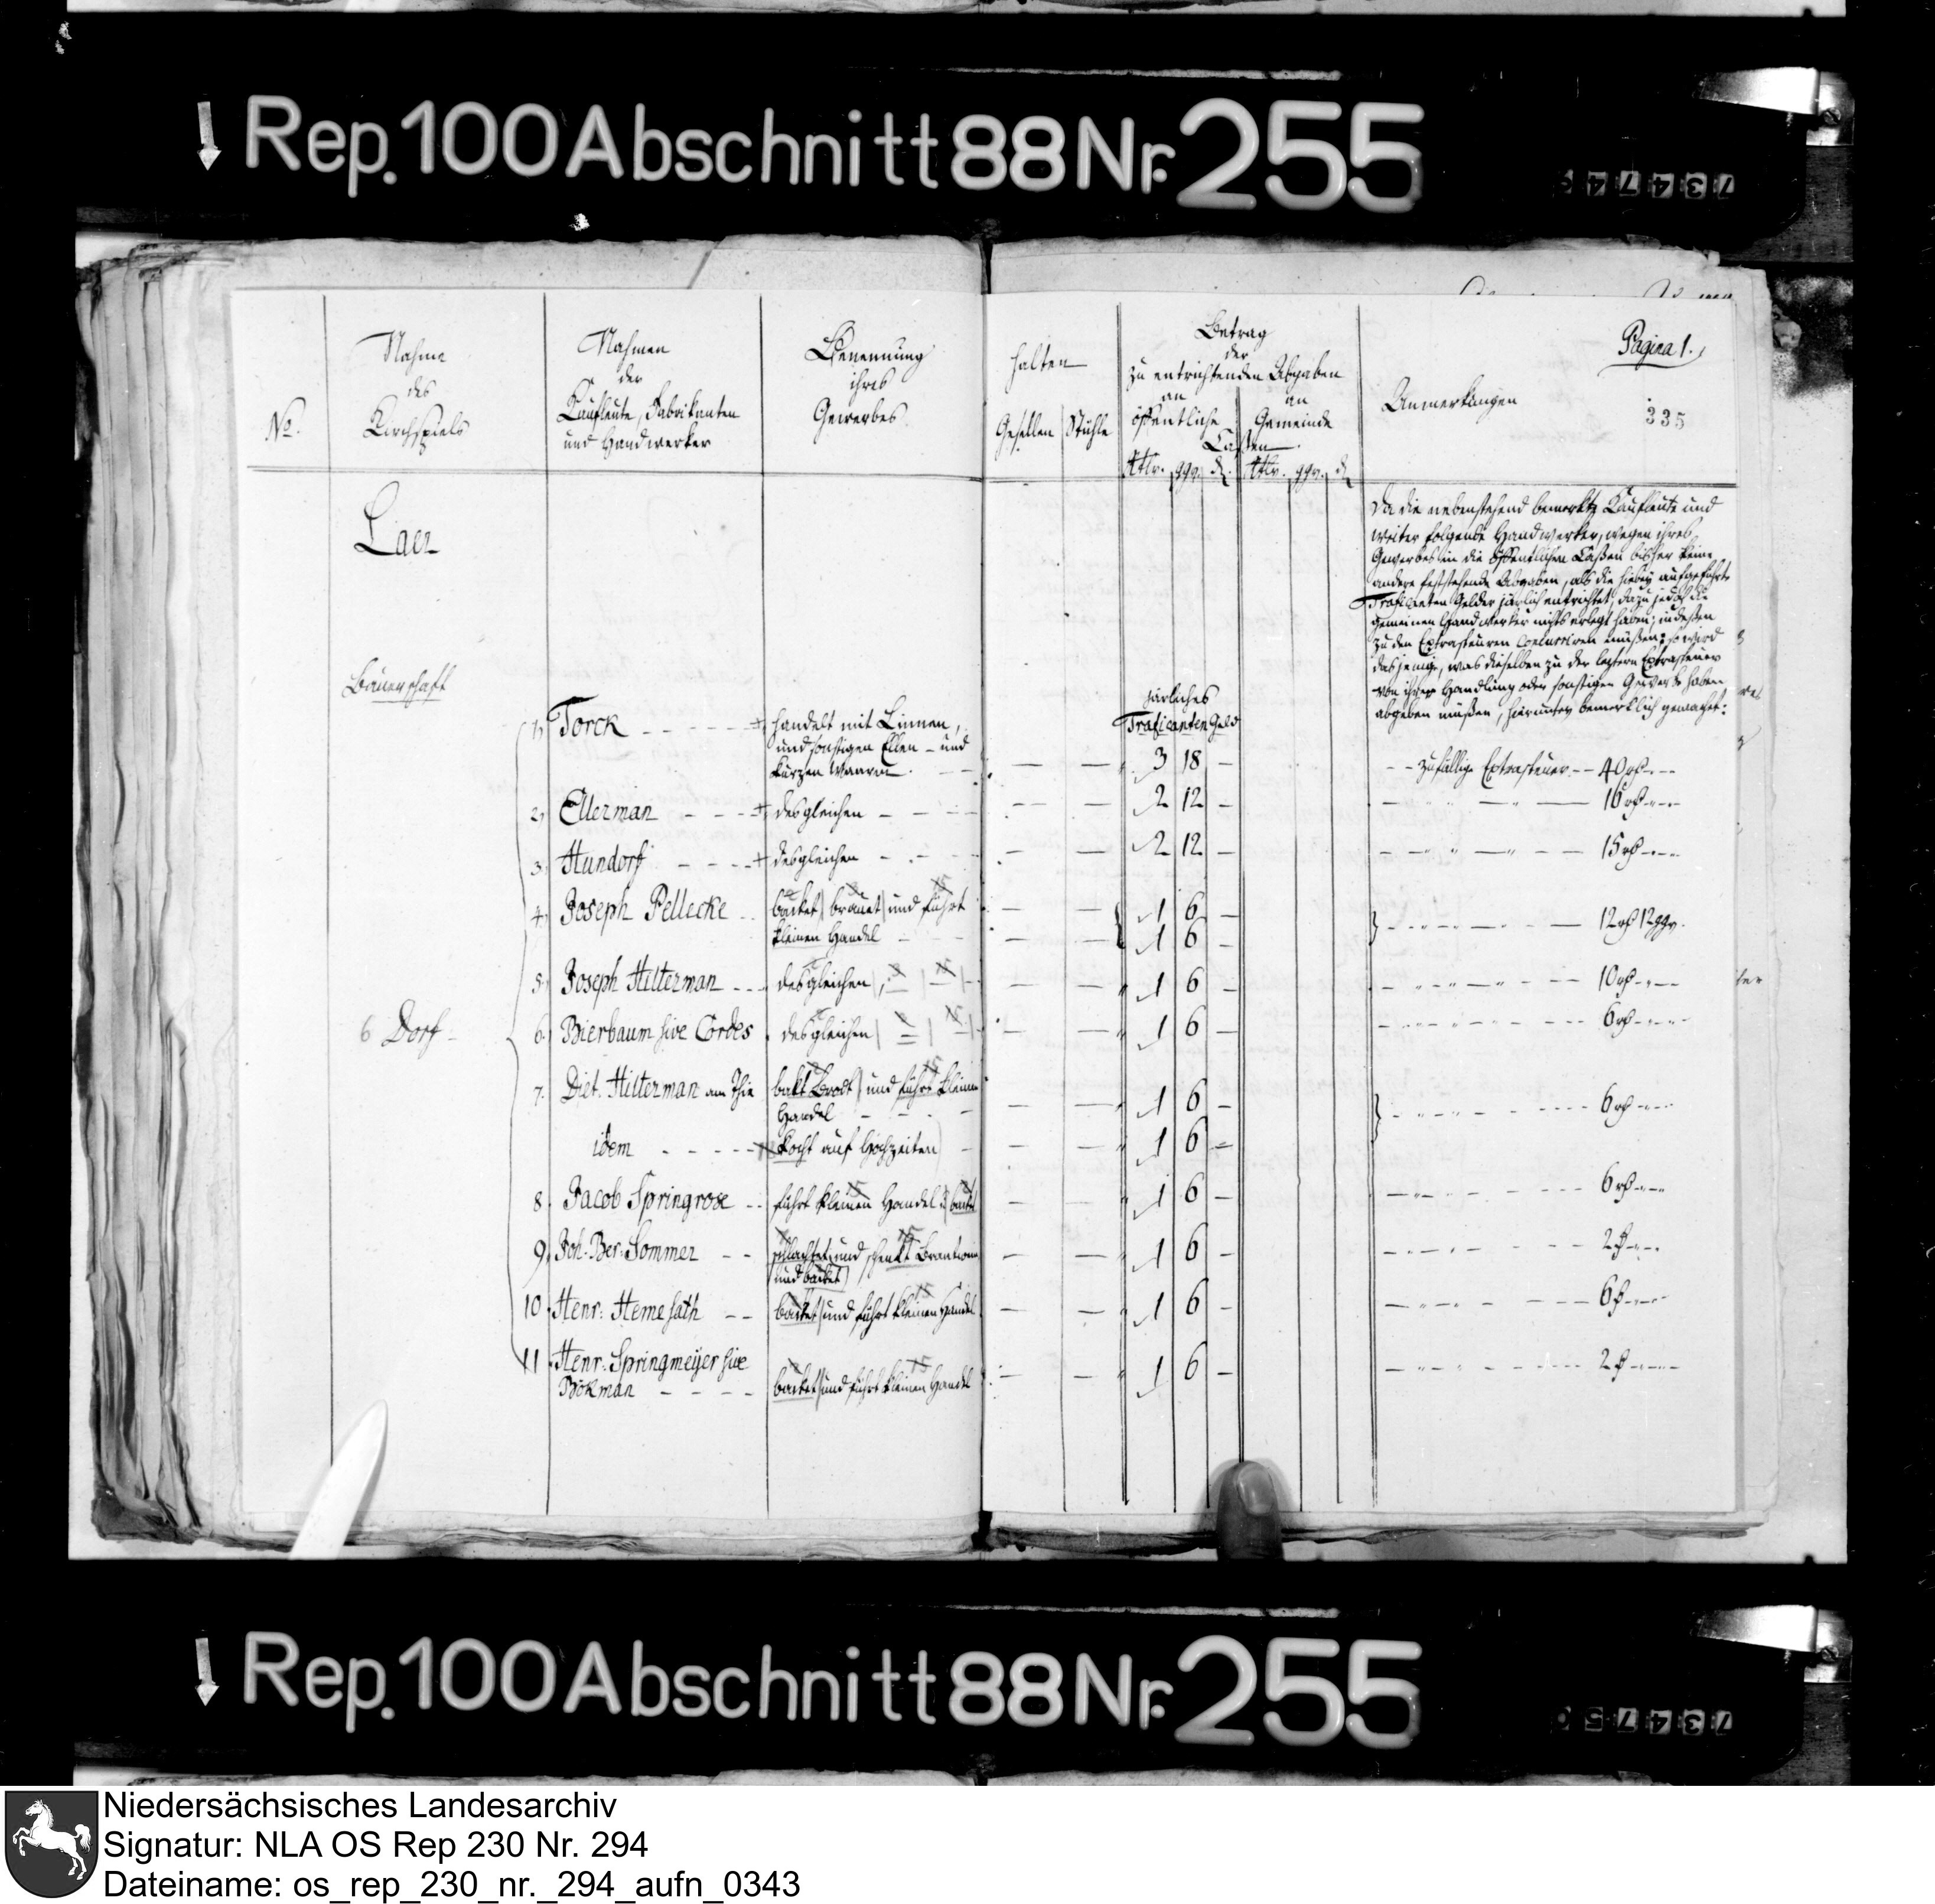 Rep.100 Abschnitt 88 Nr. 255
Pagina 1.
335
No.
Nahme
des
Kirchspiels
Nahmen
der
Kaufleute, Fabrikanten
und Handwerker
Benennung
ihres
Gewerbes
halten
Gesellen Stühle
Betrag
der
zu entrichtenden Abgaben
an öffentliche an Gemeinde
Cassen
Rtlr. ggr. d. Rtlr. ggr. d
Anmerkungen
Laer
Da die nebenstehend bemerkte Kaufleute und
weiter folgende Handwerker, wegen ihres
Gewerbes in die öffentlichen Caßen bisher keine
andere feststehende Abgaben, als die hiebey aufgeführte
Traficanten Gelder järlich entrichtet, dazu jedoch die
gemeinen Handwerker nichts erlegt haben, indeßen
zu den Extrasteuren concurriren müßen: so wird
dasjenige, was dieselben zu der leztern Extrasteuer
von ihrer Handlung oder sonstigen Gewerbe haben
abgeben müßen, hierunter bemerklich gemacht:
Bauerschaft
järliches
Traficanten Geld
1, Torck - - - - handelt mit Linnen,
und sonstigen Ellen- und
kurzen Waaren. — — 3 18 — - - zufällige Extrasteuer - - 40 rß - - -
2, Ellerman - - - desgleichen — — 2 12 — 16 rß - - -
3, Hundorf - - - desgleichen — — 2 12 — 15 rß - - -
4, Joseph Pellecke - - backet, brauet und führt — — 1 6 —
kleinen Handel — — 1 6 — 12 rß 12 ggr.
5, Joseph Hilterman - - - desgleichen — — 1 6 — 10 rß - - -
6 Dorf
6. Bierbaum sive Cordes desgleichen — — 1 6 — 6 rß - - -
7. Diet. Hilterman am Thie backt Brodt und führt kleinen
Handel — — 1 6 — 6 rß - - -
idem - - - - - kocht auf Hochzeiten — — 1 6 —
8. Jacob Springrose - - führt kleinen Handel u backet — — 1 6 — 6 rß - - -
9, Joh. Ber. Sommer - - schlachtet und schenkt Brantwein — — 1 6 — 2 ß - - -
und backet
10. Henr. Hemesath - - backet und führt kleinen Handel — — 1 6 — 6 ß - - -
11. Henr. Springmeijer sive
Bökman - - - - backet und führt kleinen Handel — — 1 6 — 2 ß - - -
Rep.100 Abschnitt 88 Nr. 255
Niedersächsisches Landesarchiv
Signatur: NLA OS Rep 230 Nr. 294
Dateiname: os_rep_230_nr._294_aufn_0343